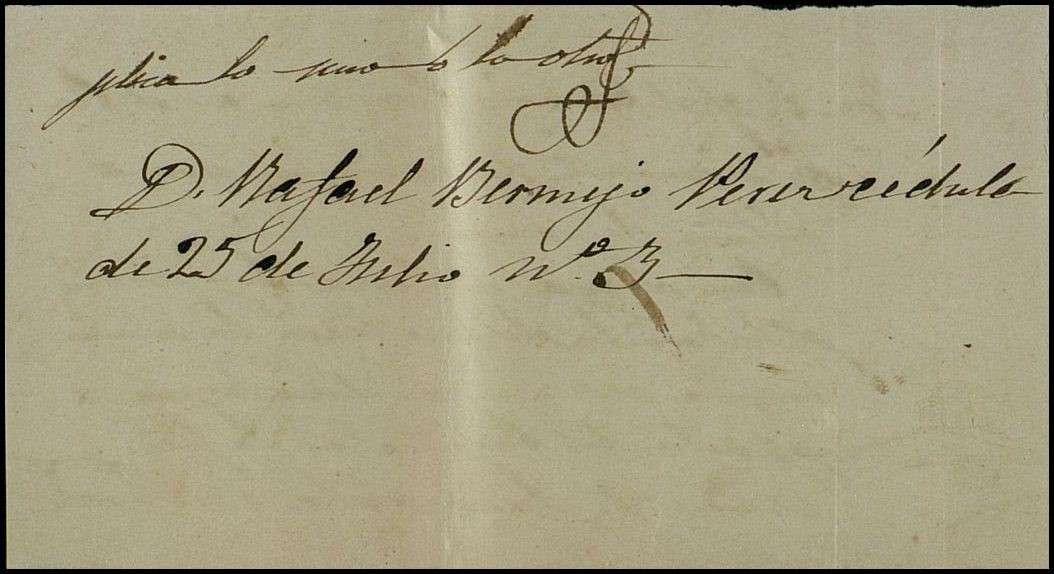 plica lo uno ó lo otro
D. Rafael Bermejo Perez cédula
de 25 de Julio Nº. 3